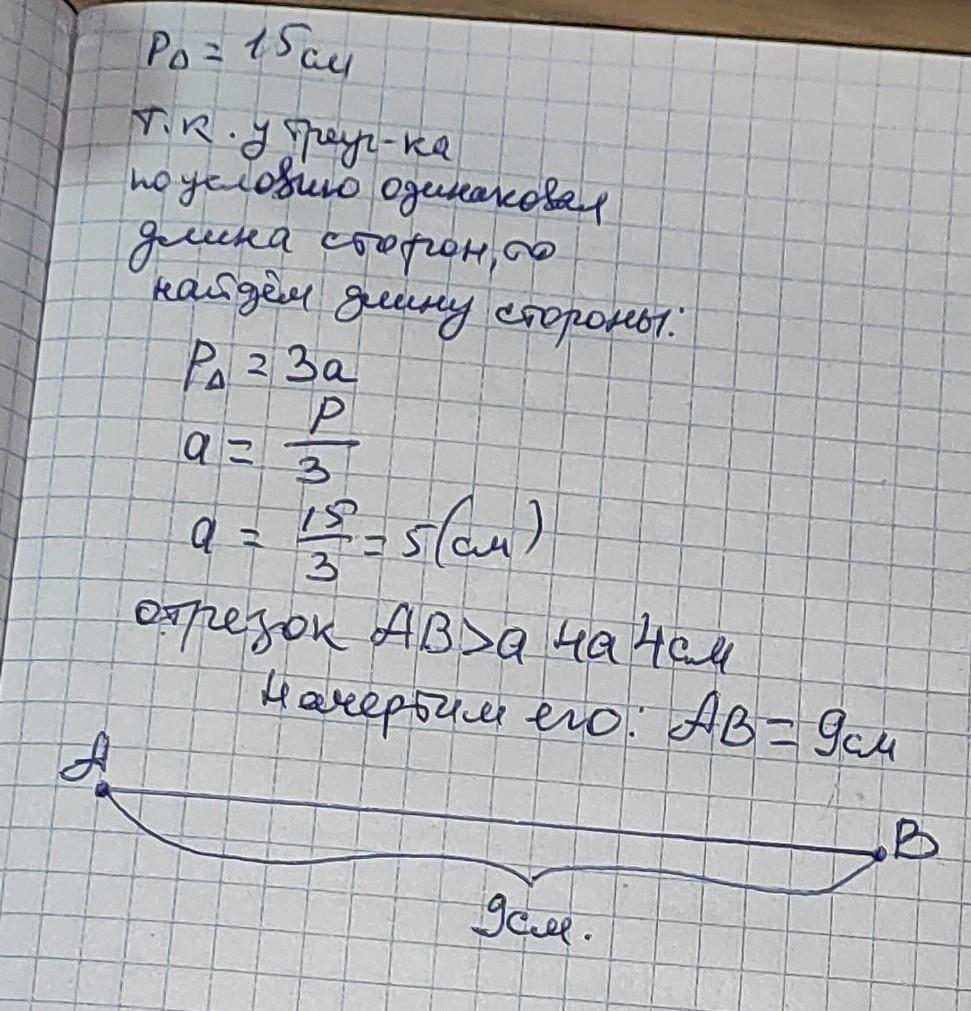 P△ = 15 см
т.к. у треуг-ка
по условию одинаковая
длина сторон, то
найдём длину стороны:
P△ = 3a
a = P/3
a = 15/3 = 5 (см)
отрезок AB>a на 4 см
Начертим его: AB = 9 см
A
B
9 см.